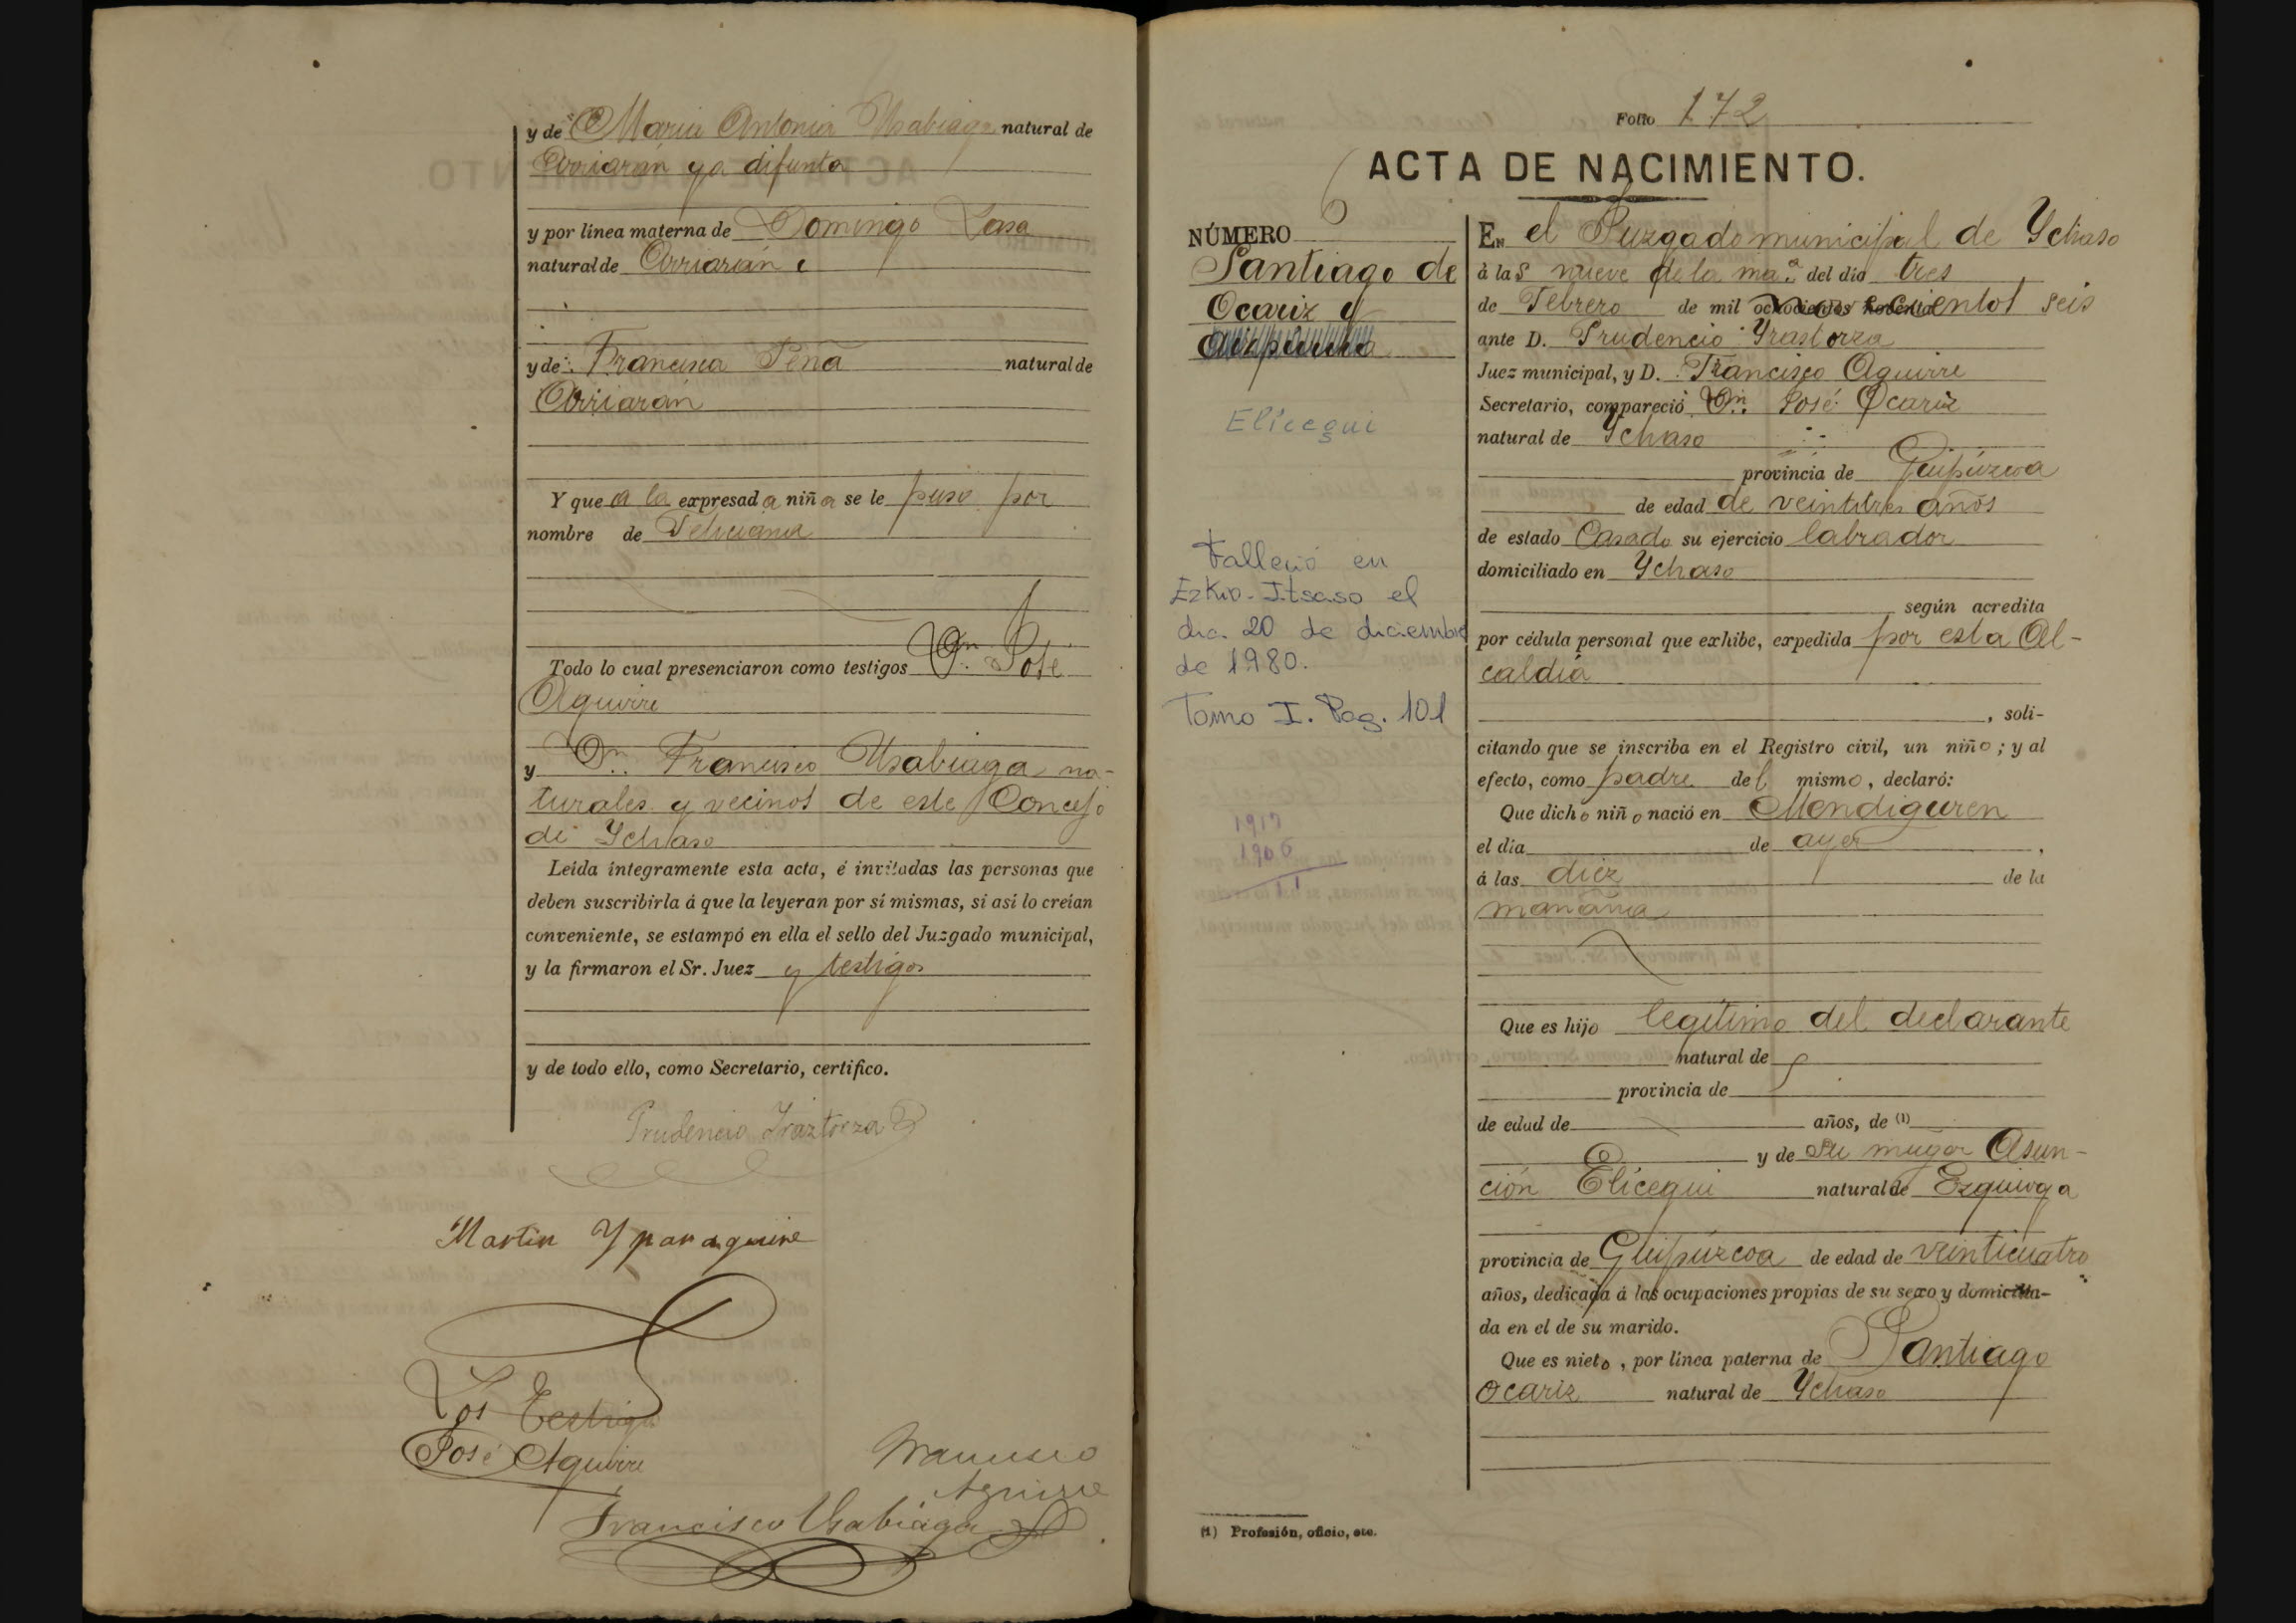 y de Maria Antonia Usabiaga natural de
Arriarán ya difunta
y por línea materna de Domingo Lasa
natural de Arriarán
y de Francisca Peña natural de
Arriarán
Y que a la expresada niña se le puso por
nombre de Feliciana
Todo lo cual presenciaron como testigos Dn. José
Aguirre
y Dn. Francisco Usabiaga na-
turales y vecinos de este Concejo
de Ychaso
Leída íntegramente esta acta, é invitadas las personas que
deben suscribirla á que la leyeran por sí mismas, si así lo creían
conveniente, se estampó en ella el sello del Juzgado municipal,
y la firmaron el Sr. Juez y testigos
y de todo ello, como Secretario, certifico.
Prudencio Yraztorza
Martin Yparaguirre
Los Testigos
José Aguirre
Francisco
Aguirre
Francisco Usabiaga
Folio 172
ACTA DE NACIMIENTO.
NÚMERO 6
Santiago de
Ocariz y
Elicegui
Falleció en
Ezkio-Itsaso el
dia 20 de diciembre
de 1980.
Tomo I. Pag. 101
1917
1906
11
En el Juzgado municipal de Ychaso
á las nueve de la ma.a del día tres
de Febrero de mil ochocientos noventa novecientos seis
ante D. Prudencio Yrastorza
Juez municipal, y D. Francisco Aguirre
Secretario, compareció Dn. José Ocariz
natural de Ychaso
provincia de Guipúzcoa
de edad de veintitres años
de estado Casado su ejercicio labrador
domiciliado en Ychaso
según acredita
por cédula personal que exhibe, expedida por esta Al-
caldía
, soli-
citando que se inscriba en el Registro civil, un niño; y al
efecto, como padre del mismo, declaró:
Que dicho niño nació en Mendiguren
el dia de ayer,
á las diez de la
mañana
Que es hijo legítimo del declarante
natural de
provincia de
de edad de años, de (1)
y de su muger Asun-
ción Elicegui natural de Ezquioga
provincia de Guipúzcoa de edad de veinticuatro
años, dedicada á las ocupaciones propias de su sexo y domicilia-
da en el de su marido.
Que es nieto, por línea paterna de Santiago
Ocariz natural de Ychaso
(1) Profesión, oficio, etc.